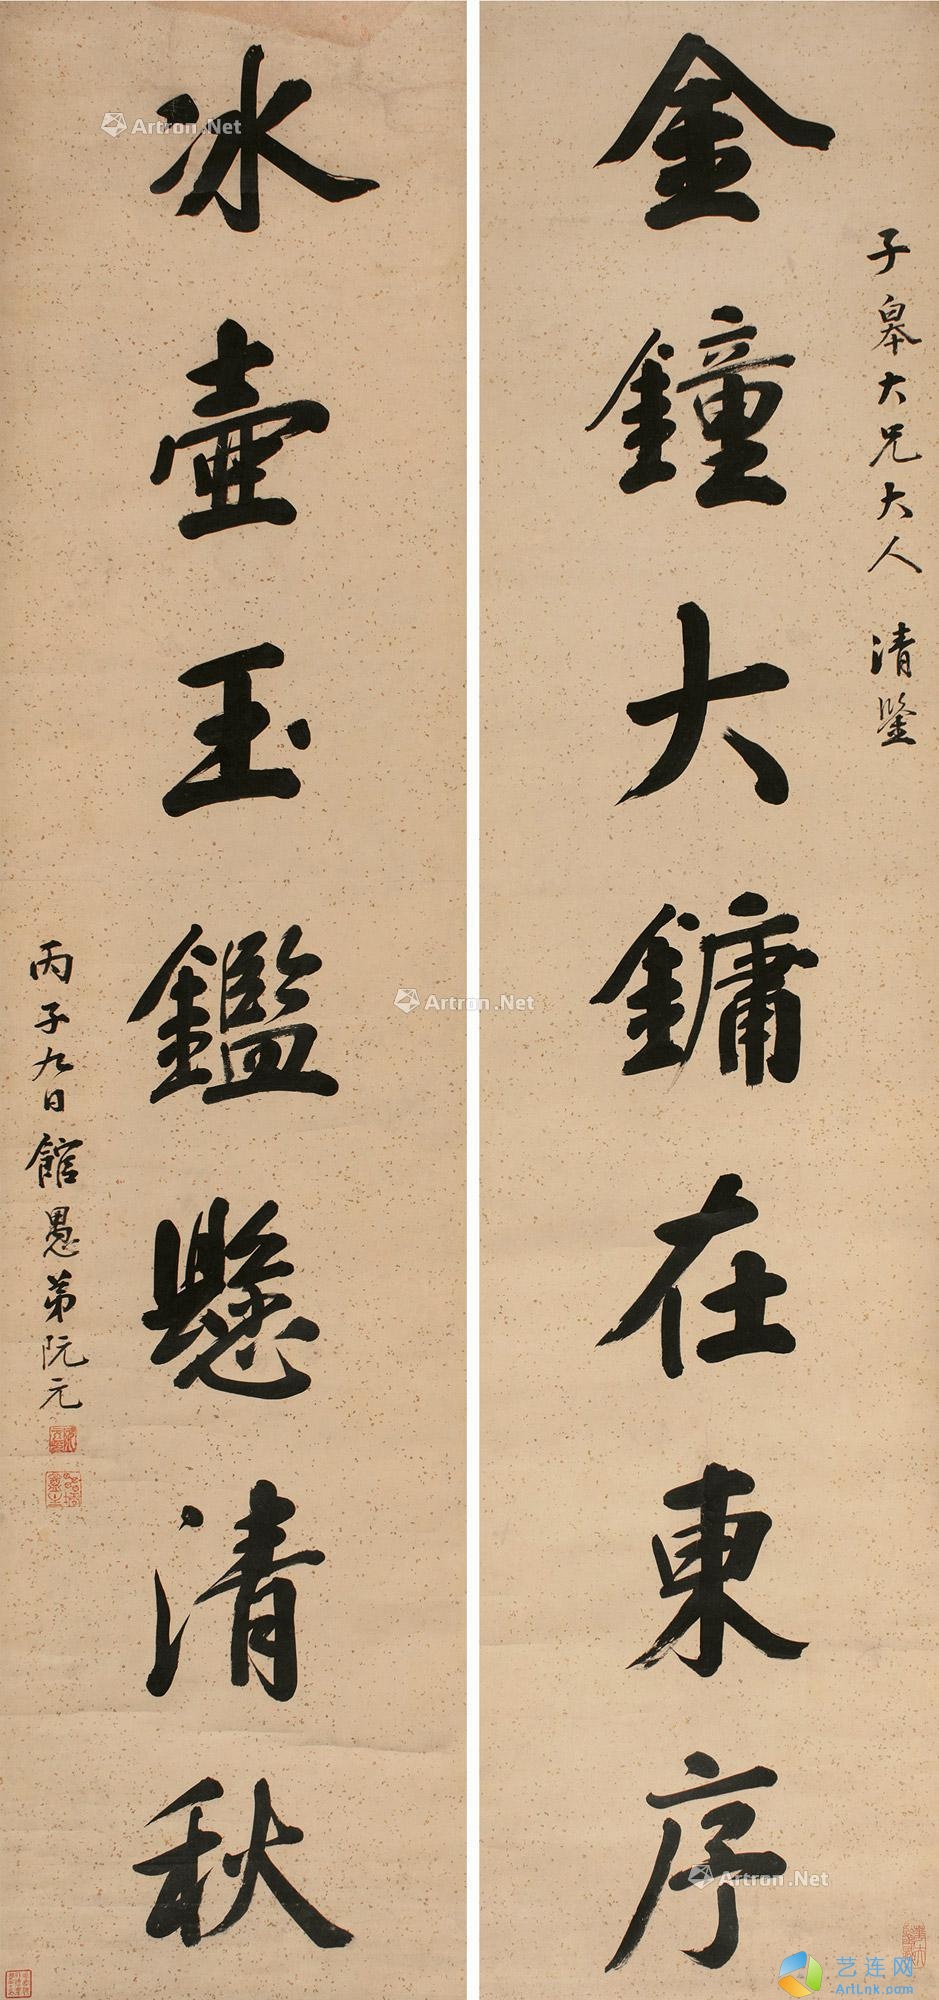 子皋大兄大人 清鉴
金鐘大鏞在東序
冰壺玉鑑懸清秋
丙子九日 館愚弟阮元
Artron.Net
Artron.Net
Artron.Net
艺连网
ArtLnk.com